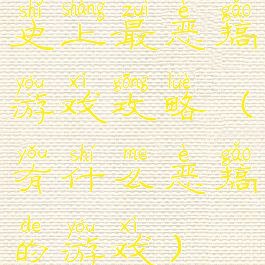 shǐ shàng zuì è gǎo
史上最恶搞
yóu xì gōng lüè
游戏攻略（
yǒu shí me è gǎo
有什么恶搞
de yóu xì
的游戏）